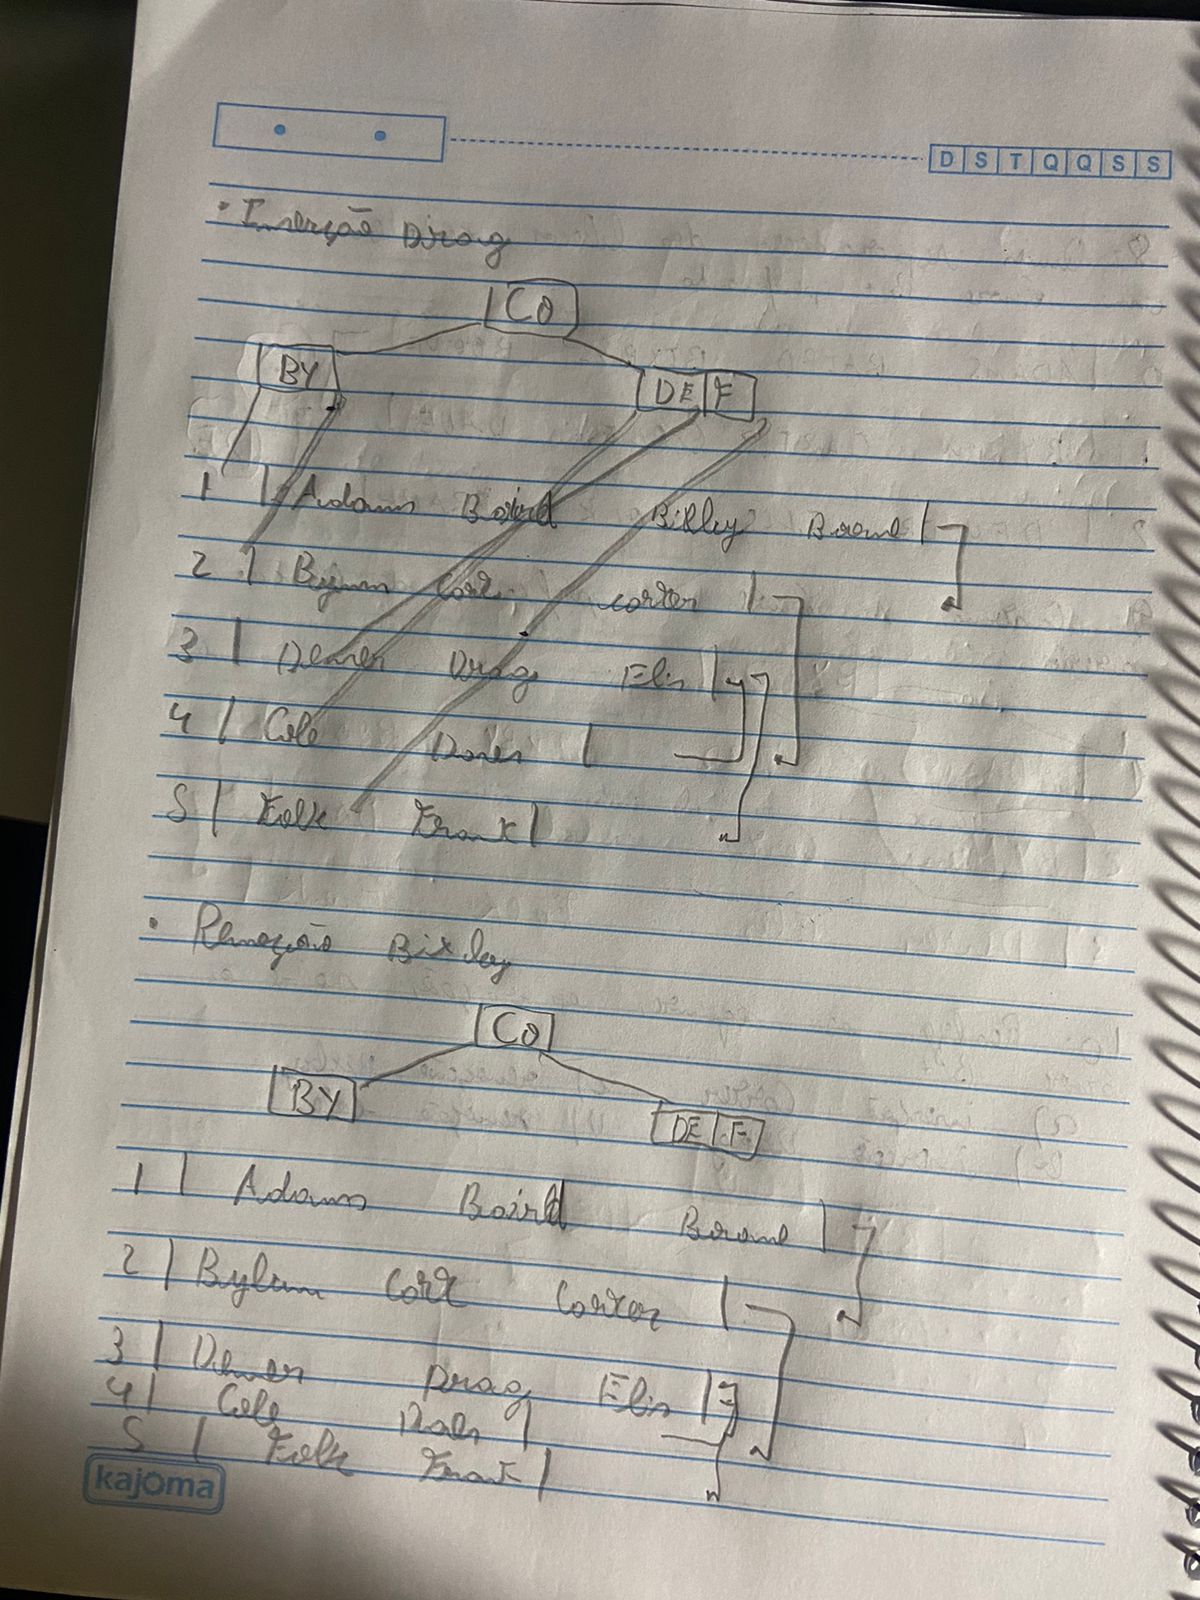 D S T Q Q S S
• Inserção Drag
CO
BY DE F
1 | Adams Baird Bixley Boone |
2 | Bynum Cart Carter |
3 | Denver Drag Elis |
4 | Cole Danes |
5 | Folk Frank |
• Remoção Bixley
CO
BY DE F
1 | Adams Baird Boone |
2 | Bylum Cart Carter |
3 | Denver Drag Elis |
4 | Cole |
5 | Folk Frank |
kajoma